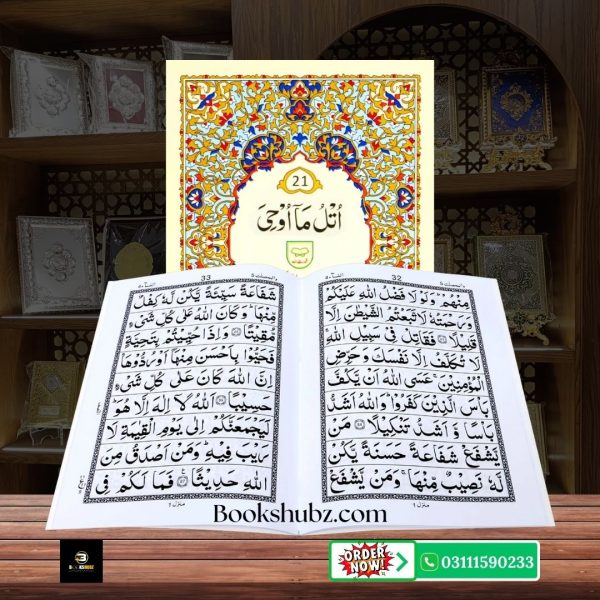 21
اُتْلُ مَآ اُوْحِیَ
32
مِنْهُمْ ؕ وَلَوْ لَا فَضْلُ اللّٰهِ عَلَیْكُمْ
وَرَحْمَتُهٗ لَاتَّبَعْتُمُ الشَّیْطٰنَ اِلَّا
قَلِیْلًا ۝ فَقَاتِلْ فِیْ سَبِیْلِ اللّٰهِ ۚ
لَا تُكَلَّفُ اِلَّا نَفْسَكَ وَحَرِّضِ
الْمُؤْمِنِیْنَ ۚ عَسَی اللّٰهُ اَنْ یَّكُفَّ
بَاْسَ الَّذِیْنَ كَفَرُوْا ؕ وَاللّٰهُ اَشَدُّ
بَاْسًا وَّاَشَدُّ تَنْكِیْلًا ۝ مَنْ
یَّشْفَعْ شَفَاعَةً حَسَنَةً یَّكُنْ
لَّهٗ نَصِیْبٌ مِّنْهَا ۚ وَمَنْ یَّشْفَعْ
منزل ١
33
شَفَاعَةً سَیِّئَةً یَّكُنْ لَّهٗ كِفْلٌ
مِّنْهَا ؕ وَكَانَ اللّٰهُ عَلٰی كُلِّ شَیْءٍ
مُّقِیْتًا ۝ وَاِذَا حُیِّیْتُمْ بِتَحِیَّةٍ
فَحَیُّوْا بِاَحْسَنَ مِنْهَاۤ اَوْ رُدُّوْهَا ؕ
اِنَّ اللّٰهَ كَانَ عَلٰی كُلِّ شَیْءٍ
حَسِیْبًا ۝ اَللّٰهُ لَاۤ اِلٰهَ اِلَّا هُوَ ؕ
لَیَجْمَعَنَّكُمْ اِلٰی یَوْمِ الْقِیٰمَةِ لَا
رَیْبَ فِیْهِ ؕ وَمَنْ اَصْدَقُ مِنَ
اللّٰهِ حَدِیْثًا ۝ فَمَا لَكُمْ فِی
منزل ١
Bookshubz.com
ORDER NOW!
03111590233